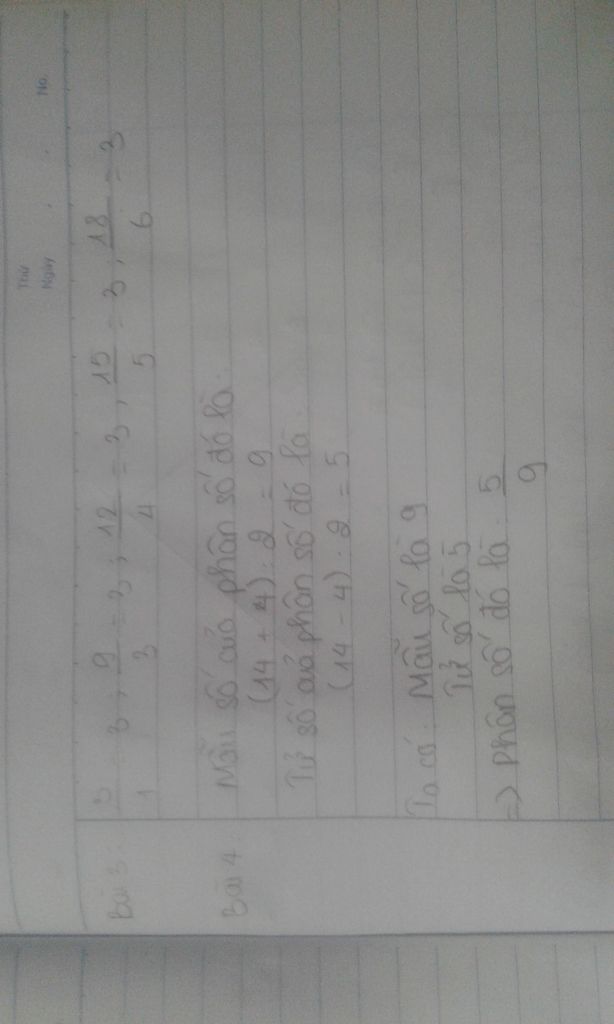 Thứ
Ngày . . No.
Bài 3: 3/1 = 3 ; 9/3 = 3 ; 12/4 = 3 ; 15/5 = 3 ; 18/6 = 3
Bài 4: Mẫu số của phân số đó là:
(14 + 4) : 2 = 9
Tử số của phân số đó là:
(14 - 4) : 2 = 5
Ta có: Mẫu số là 9
Tử số là 5
=> Phân số đó là: 5/9